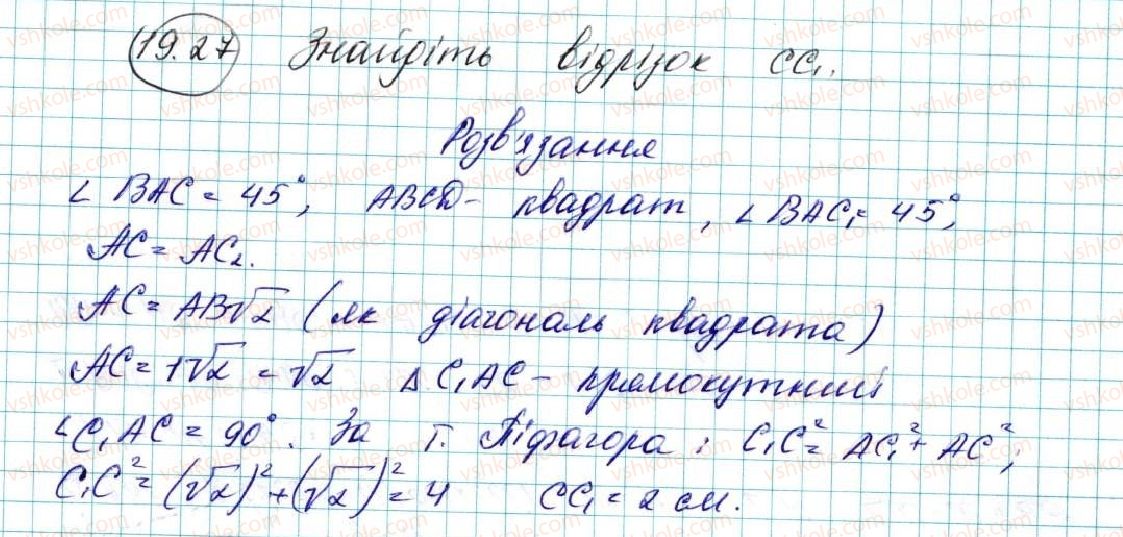 19.27 Знайдіть відрізок CC₁.
Розв'язання
∠ BAC = 45°, ABCD - квадрат, ∠ BAC₁ = 45°,
AC = AC₂.
AC = AB√2 (як діагональ квадрата)
AC = 1√2 = √2 Δ C₁AC - прямокутний
∠C₁AC = 90°. За т. Піфагора : C₁C² = AC₁² + AC²;
C₁C² = (√2)² + (√2)² = 4 CC₁ = 2 см.